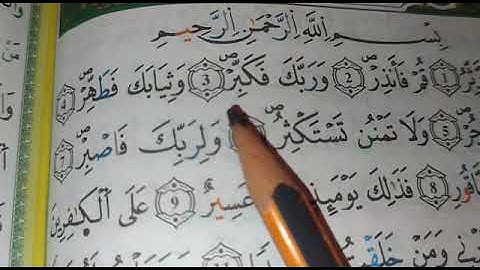 بِسْمِ اللَّهِ الرَّحْمَٰنِ الرَّحِيمِ
۝١ قُمْ فَأَنذِرْ ۝٢ وَرَبَّكَ فَكَبِّرْ ۝٣ وَثِيَابَكَ فَطَهِّرْ ۝٤
۝٥ وَلَا تَمْنُن تَسْتَكْثِرُ وَلِرَبِّكَ فَاصْبِرْ ۝٧
۝٨ فَذَٰلِكَ يَوْمَئِذٍ عَسِيرٌ ۝٩ عَلَى الْكَٰفِرِينَ
وَمَنْ خَلَقْتُ